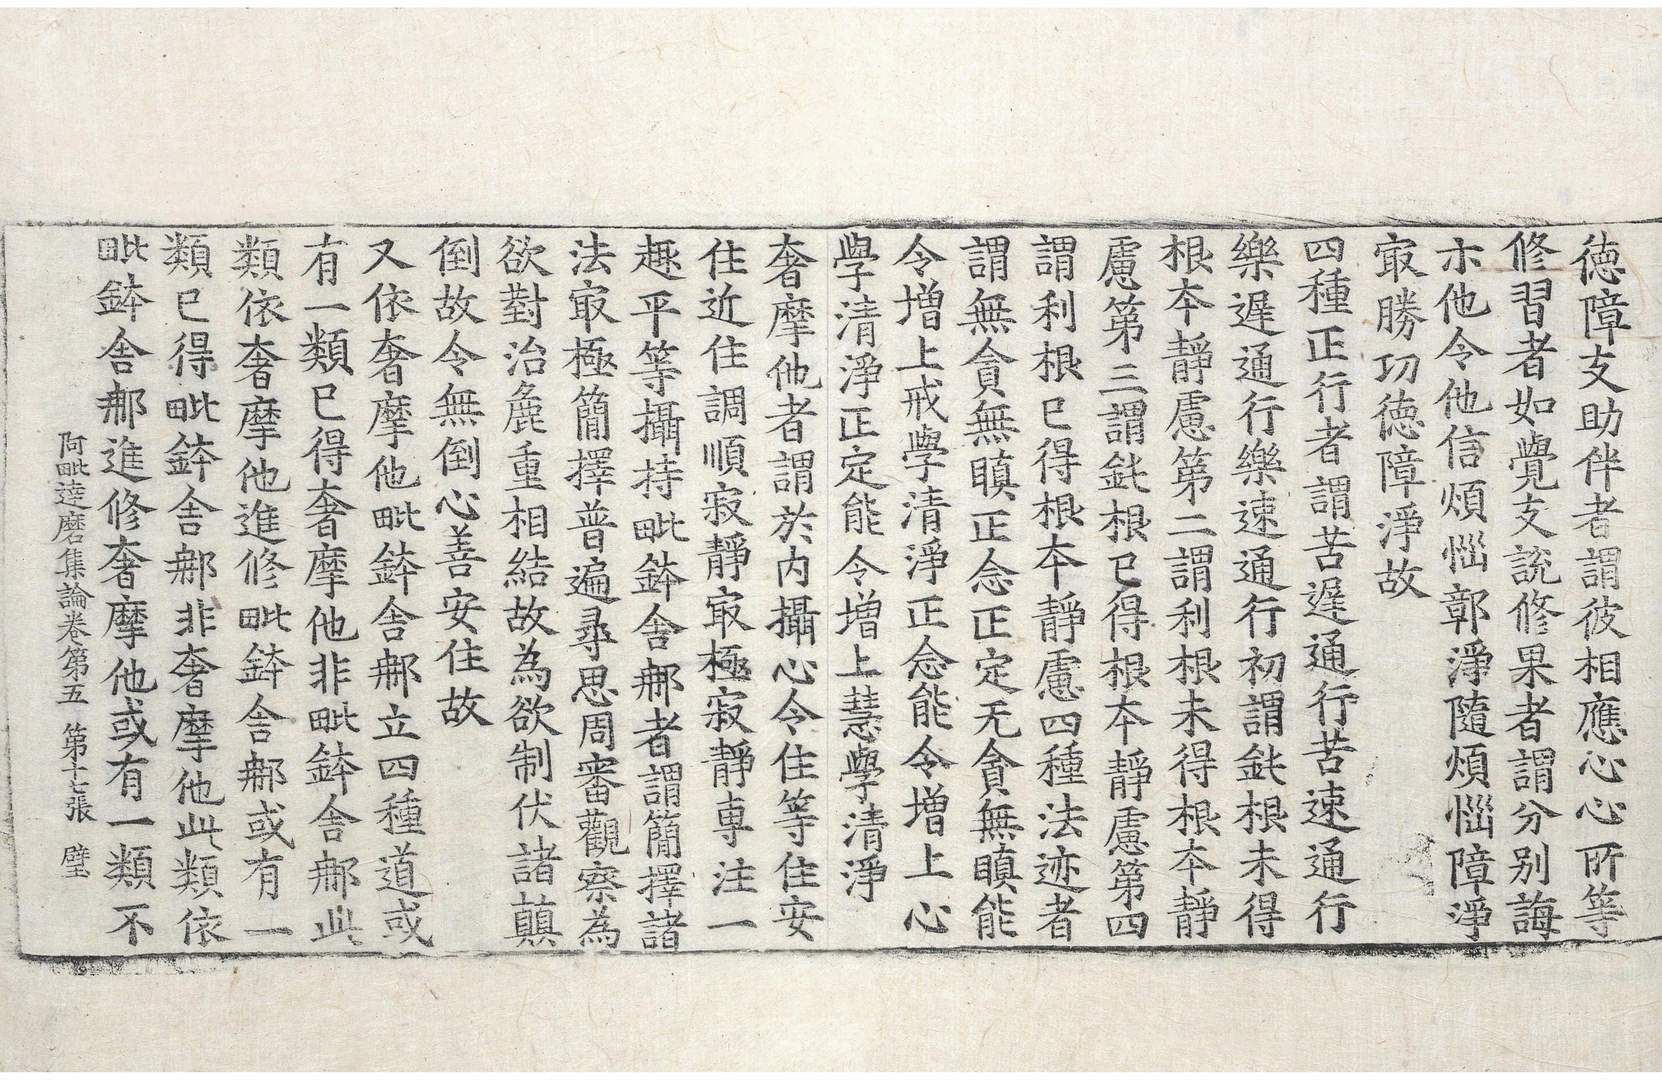 德障支助伴者謂彼相應心心所等
修習者如覺支說修果者謂分别誨
示他令他信煩惱鄣淨隨煩惱障淨
㝡勝功德障淨故
四種正行者謂苦遲通行苦速通行
樂遲通行樂速通行初謂鈍根未得
根本靜慮第二謂利根未得根本靜
慮第三謂鈍根已得根本靜慮第四
謂利根已得根本靜慮四種法迹者
謂無貪無瞋正念正定无貪無瞋能
令增上戒學清淨正念能令增上心
學清淨正定能令增上慧學清淨
奢摩他者謂於内攝心令住等住安
住近住調順寂靜㝡極寂靜專注一
趣平等攝持毗鉢舍那者謂簡擇諸
法㝡極簡擇普遍尋思周審觀察為
欲對治麁重相結故為欲制伏諸顛
倒故令無倒心善安住故
又依奢摩他毗鉢舍那立四種道或
有一類已得奢摩他非毗鉢舍那此
類依奢摩他進修毗鉢舍那或有一
類已得毗鉢舍那非奢摩他此類依
毗鉢舍那進修奢摩他或有一類不
阿毗達磨集論卷第五 第十七張 壁